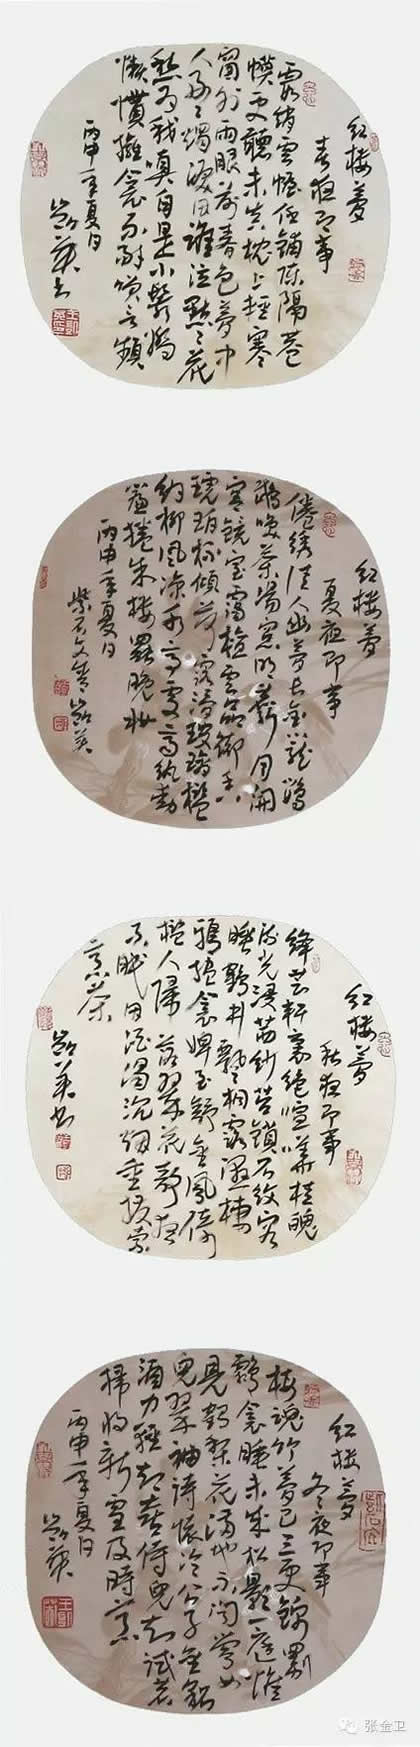 红楼梦
春夜即事
霞绡雲幄任铺陈隔巷
蟆更聽未真枕上轻寒
窗外雨眼前春色夢中
人盈盈烛淚因谁泣點點花
愁为我嗔自是小鬟娇
懒惯擁衾不耐笑言频
丙申年夏日
凯英书
红楼梦
夏夜即事
倦绣佳人幽梦长金笼鹦
鹉唤茶汤窗明麝月開
宫镜室霭檀雲品御香
琥珀杯倾荷露滑玻璃槛
纳柳風凉水亭處處齐纨動
簾捲朱楼罷晚妆
丙申年夏日
凯英
红楼梦
秋夜即事
绛芸轩裏绝喧哗桂魄
流光浸茜纱苔锁石纹容
睡鹤井飘桐露湿栖
鸦抱衾婢至舒金凤倚
槛人归落翠花静夜
不眠因酒渴沉烟重拨索
烹茶
凯英书
红楼梦
冬夜即事
梅魂竹梦已三更锦罽
鹴衾睡未成松影一庭惟
见鹤梨花满地不闻莺女
儿翠袖诗怀冷公子金貂
酒力轻却喜侍兒知试茗
掃将新雪及时烹
丙申年夏日
凯英
张金卫